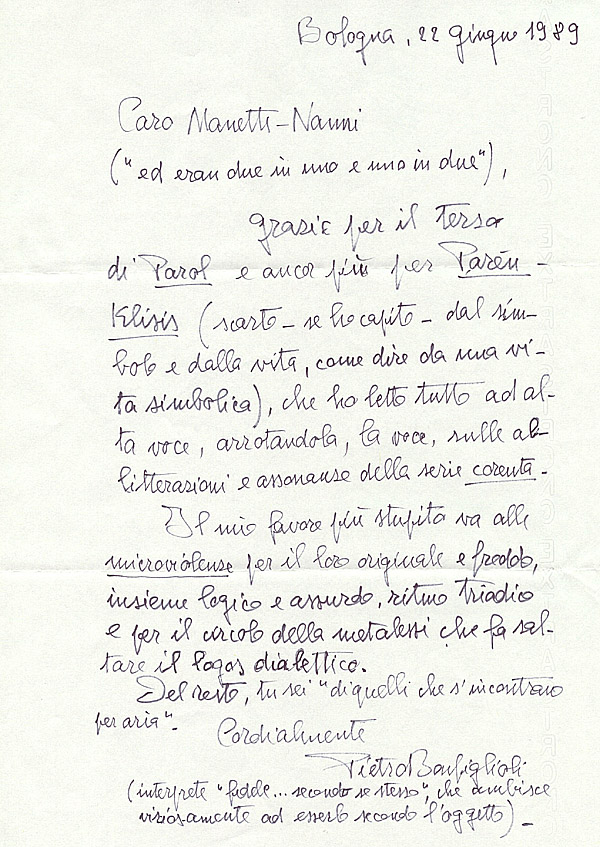 Bologna, 22 giugno 1989
Caro Manetti-Nanni
("ed eran due in uno e uno in due"),
grazie per il terso
di Parol e ancor più per Parén-
Klisis (scarto - se ho capito - dal sim-
bolo e dalla vita, come dire da una vi-
ta simbolica), che ho letto tutto ad al-
ta voce, arrotandola, la voce, sulle al-
litterazioni e assonanze della serie corenta.
Il mio favore più stupito va alle
microviolenze per il loro originale e freddo,
insieme logico e assurdo, ritmo triadico
e per il circolo della metalessi che fa sal-
tare il logos dialettico.
Del resto, tu sei "di quelli che s'incontrano
per aria".
Cordialmente
Pietro Bonfiglioli
(interprete "fedele... secondo se stesso", che ambisce
viziosamente ad esserlo secondo l'oggetto).-